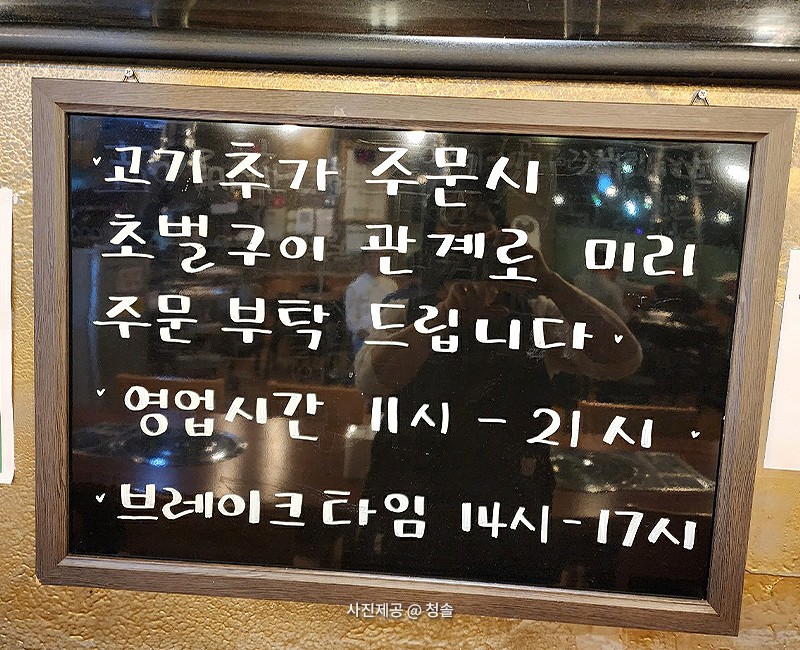 고기추가 주문시
초벌구이 관계로 미리
주문 부탁 드립니다.
영업시간 11시 - 21시.
브레이크타임 14시-17시
사진제공 @ 청솔